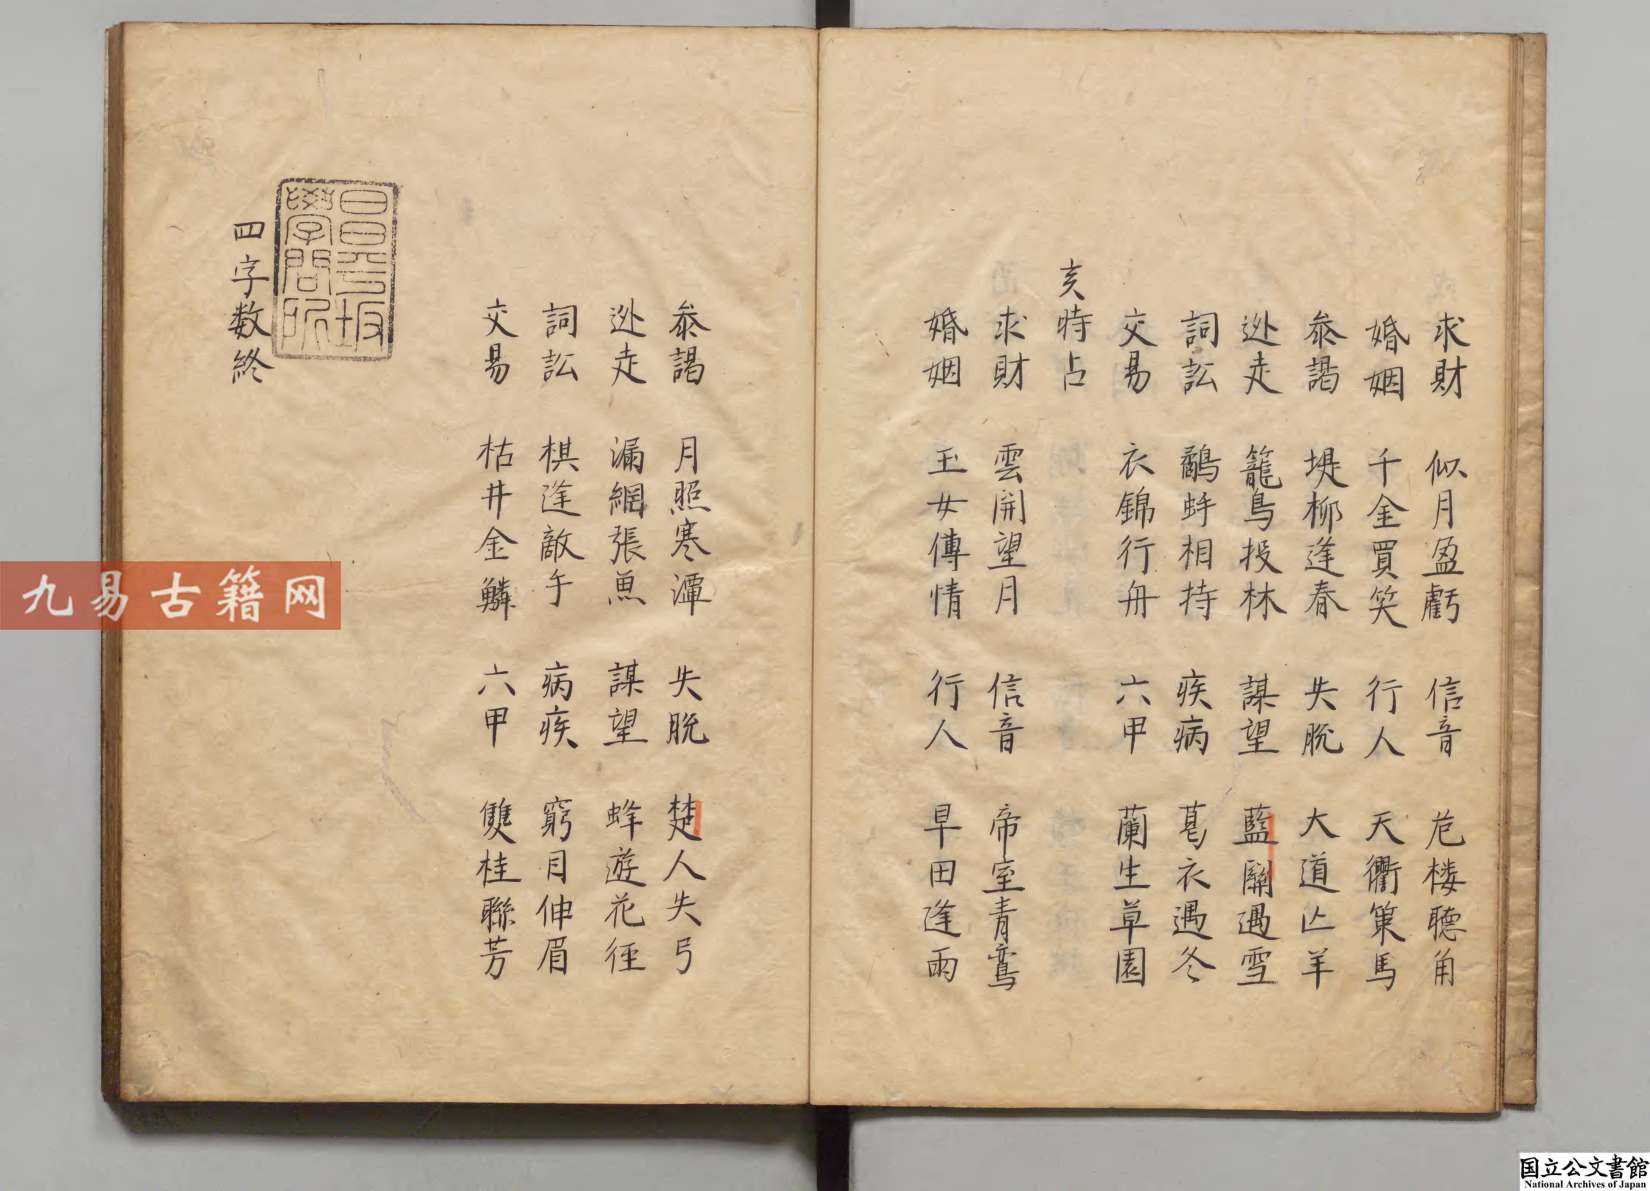 求財 似月盈虧 信音 危楼聴角
婚姻 千金買笑 行人 天衢策馬
叅謁 堤柳逢春 失脫 大道亾羊
迯走 籠鳥投林 謀望 藍關遇雪
詞訟 鷸蚌相持 疾病 葛衣遇冬
交易 衣錦行舟 六甲 蘭生草園
亥時占
求財 雲開望月 信音 帝室青鸞
婚姻 玉女傳情 行人 早田逢雨
叅謁 月照寒潭 失脫 楚人失弓
迯走 漏網張魚 謀望 蜂遊花徑
詞訟 棋逢敵手 病疾 窮目伸眉
交易 枯井金鱗 六甲 雙桂聯芳
四字数終
昌平坂
學問所
九易古籍网
国立公文書館
National Archives of Japan